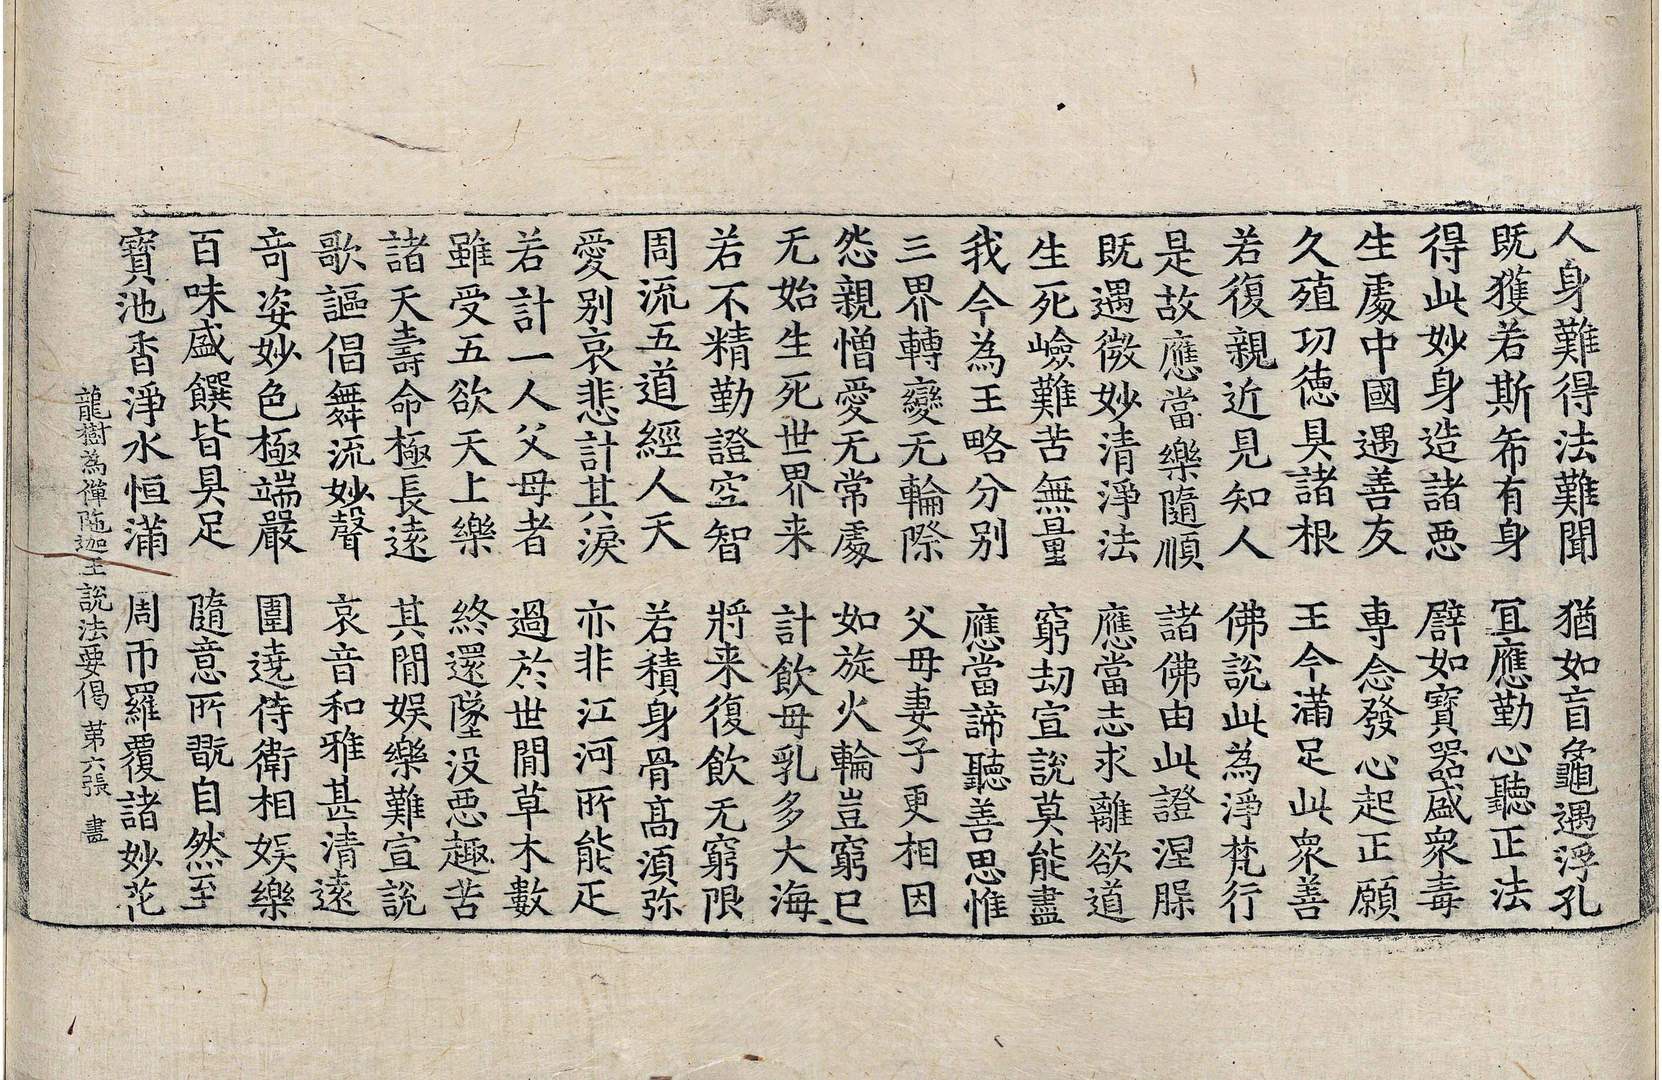 人身難得法難聞　猶如盲龜遇浮孔
既獲若斯希有身　冝應勤心聽正法
得此妙身造諸惡　譬如寶器盛衆毒
生處中國遇善友　専念發心起正願
久殖功徳具諸根　王今滿足此衆善
若復親近見知人　佛說此為淨梵行
是故應當樂隨順　諸佛由此證涅槃
既遇微妙清淨法　應當志求離欲道
生死嶮難苦無量　窮劫宣說莫能盡
我今為王略分別　應當諦聽善思惟
三界轉變无輪際　父母妻子更相因
怨親憎愛无常處　如旋火輪豈窮已
无始生死世界来　計飲母乳多大海
若不精勤證空智　將来復飲无窮限
周流五道經人天　若積身骨髙湏弥
愛别哀悲計其淚　亦非江河所能疋
若計一人父母者　過於世閒草木數
雖受五欲天上樂　終還墜没惡趣苦
諸天壽命極長遠　其閒娱樂難宣說
歌謳倡舞流妙聲　哀音和雅甚清遠
竒姿妙色極端嚴　圍遶侍衛相娱樂
百味盛饌皆具足　隨意所翫自然至
寶池香淨水恒滿　周帀羅覆諸妙花
龍樹為禪陁迦王說法要偈　第六張　盡